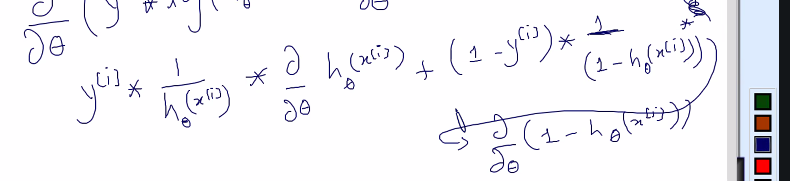 ∂/∂θ (y * 
y^[i] * 1/h_θ(x^[i]) * ∂/∂θ h_θ(x^[i]) + (1 - y^[i]) * 1/(1 - h_θ(x^[i])) *
∂/∂θ (1 - h_θ(x^[i]))